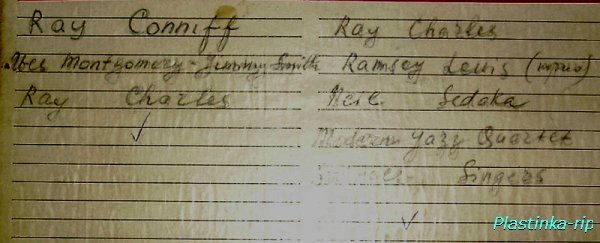 Ray Conniff
Wes Montgomery - Jimmy Smith
Ray Charles
Ray Charles
Ramsey Lewis (трио)
Neil Sedaka
Modern Jazz Quartet
Singers
Plastinka-rip